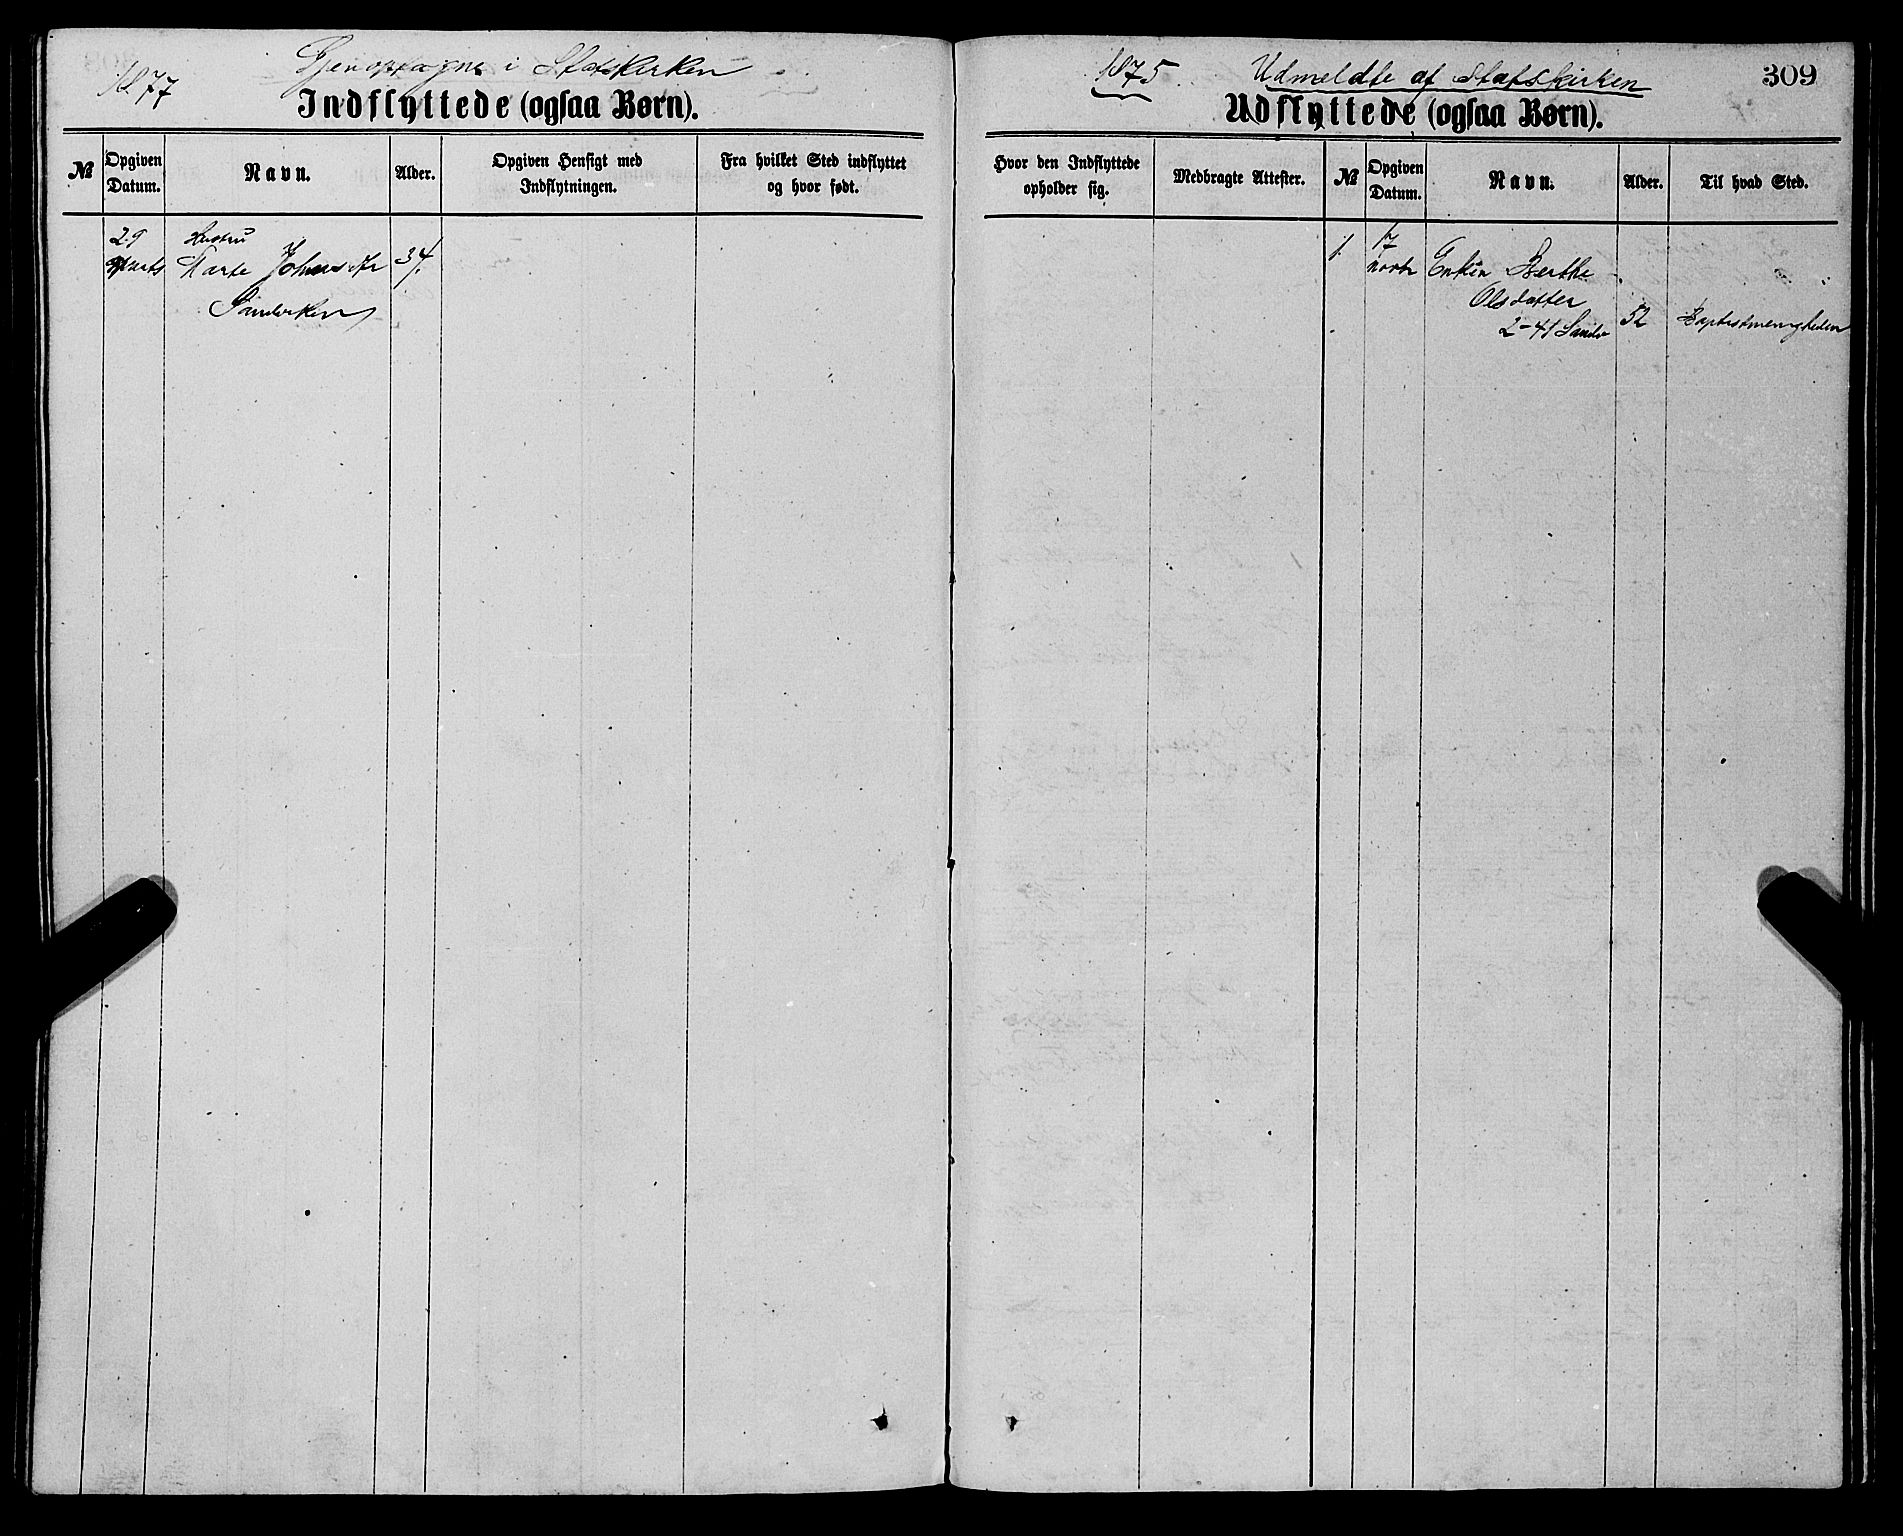 1877
Gjenoptagne i Statskirken
Indflyttede (ogsaa Børn).
№
Opgiven Datum.
Navn.
Alder.
Opgiven Hensigt med Indflytningen.
Fra hvilket Sted indflyttet og hvor født.
29 Hustru
Marte Johnsdtr 34
1875 Udmeldte af Statskirken 309
Udflyttede (ogsaa Børn).
Hvor den Indflyttede opholder sig.
Medbragte Attester.
№
Opgiven Datum.
Navn.
Alder.
Til hvad Sted.
1. 17
novbr Enken Berthe
Olsdatter
2-41 Sandv 52 Baptistmenigheden